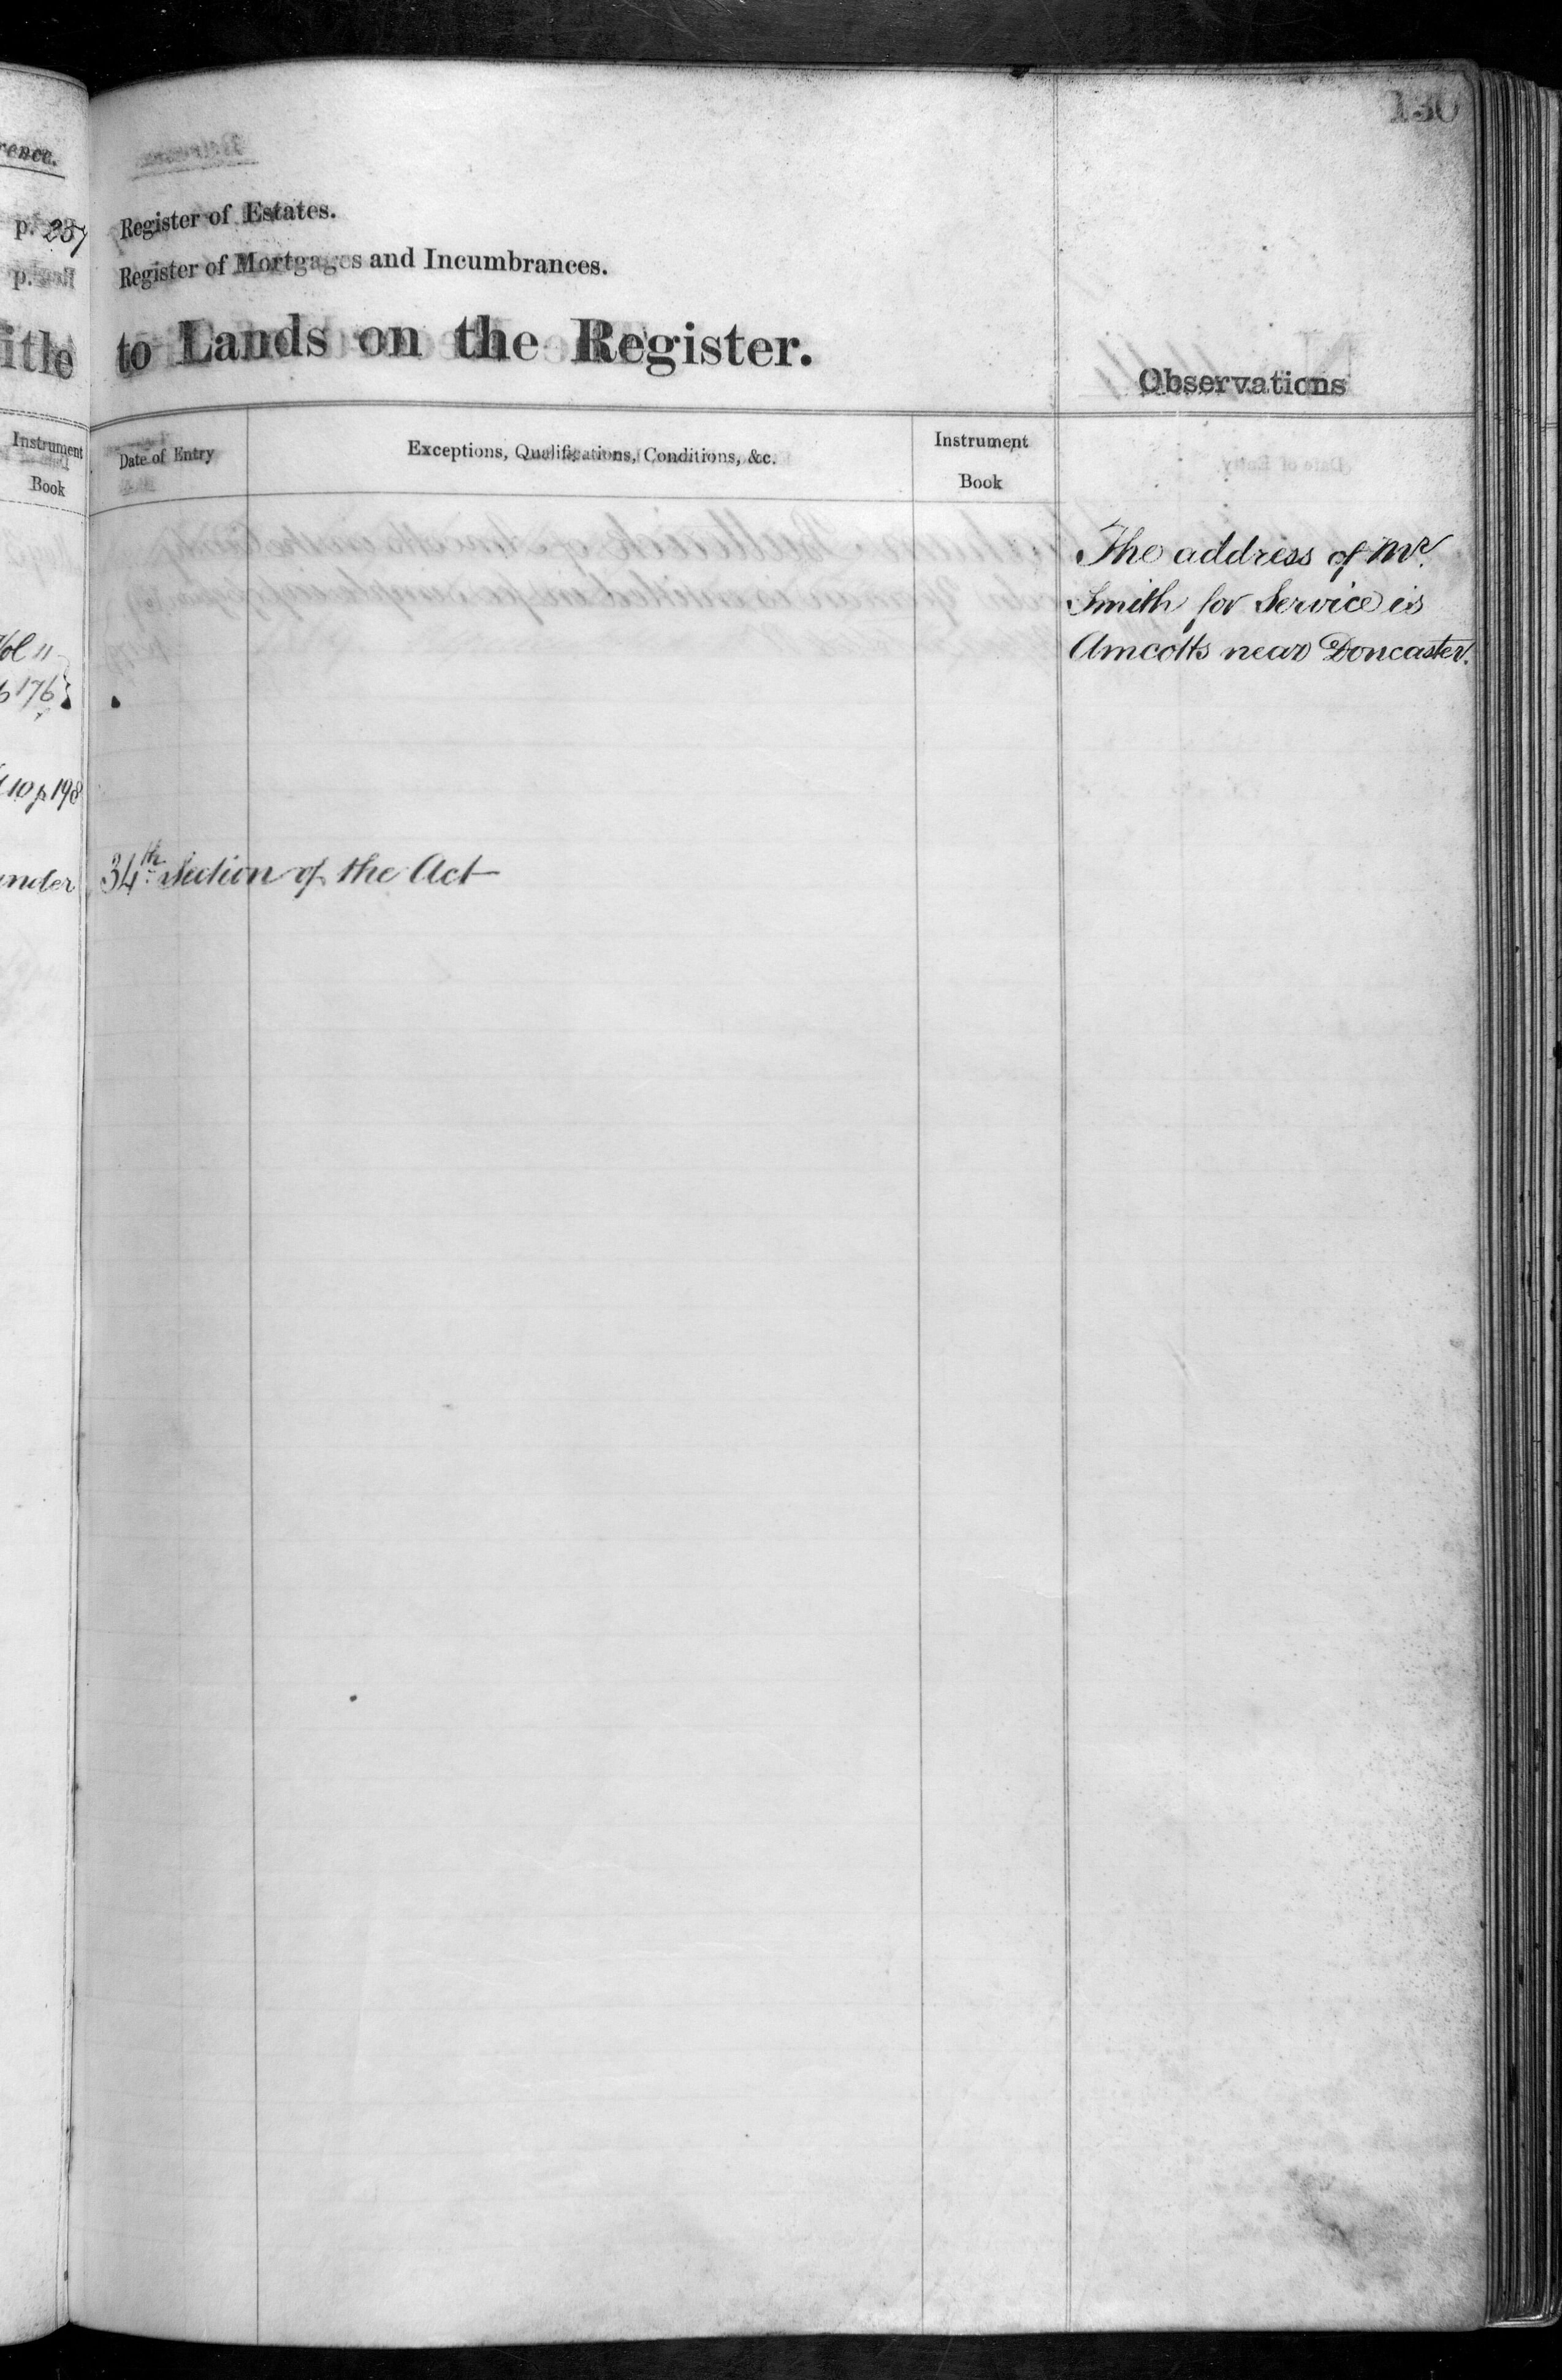 130
rence.
p. 237
p.
Register of Estates.
Register of Mortgages and Incumbrances.
itle to Lands on the Register.
Observations
Instrument
Book
Date of Entry
Exceptions, Qualifications, Conditions, &c.
Instrument
Book
The address of Mr.
Smith for Service is
Amcotts near Doncaster.
Vol 11
p 176
10 p 198
under 34th Section of the Act